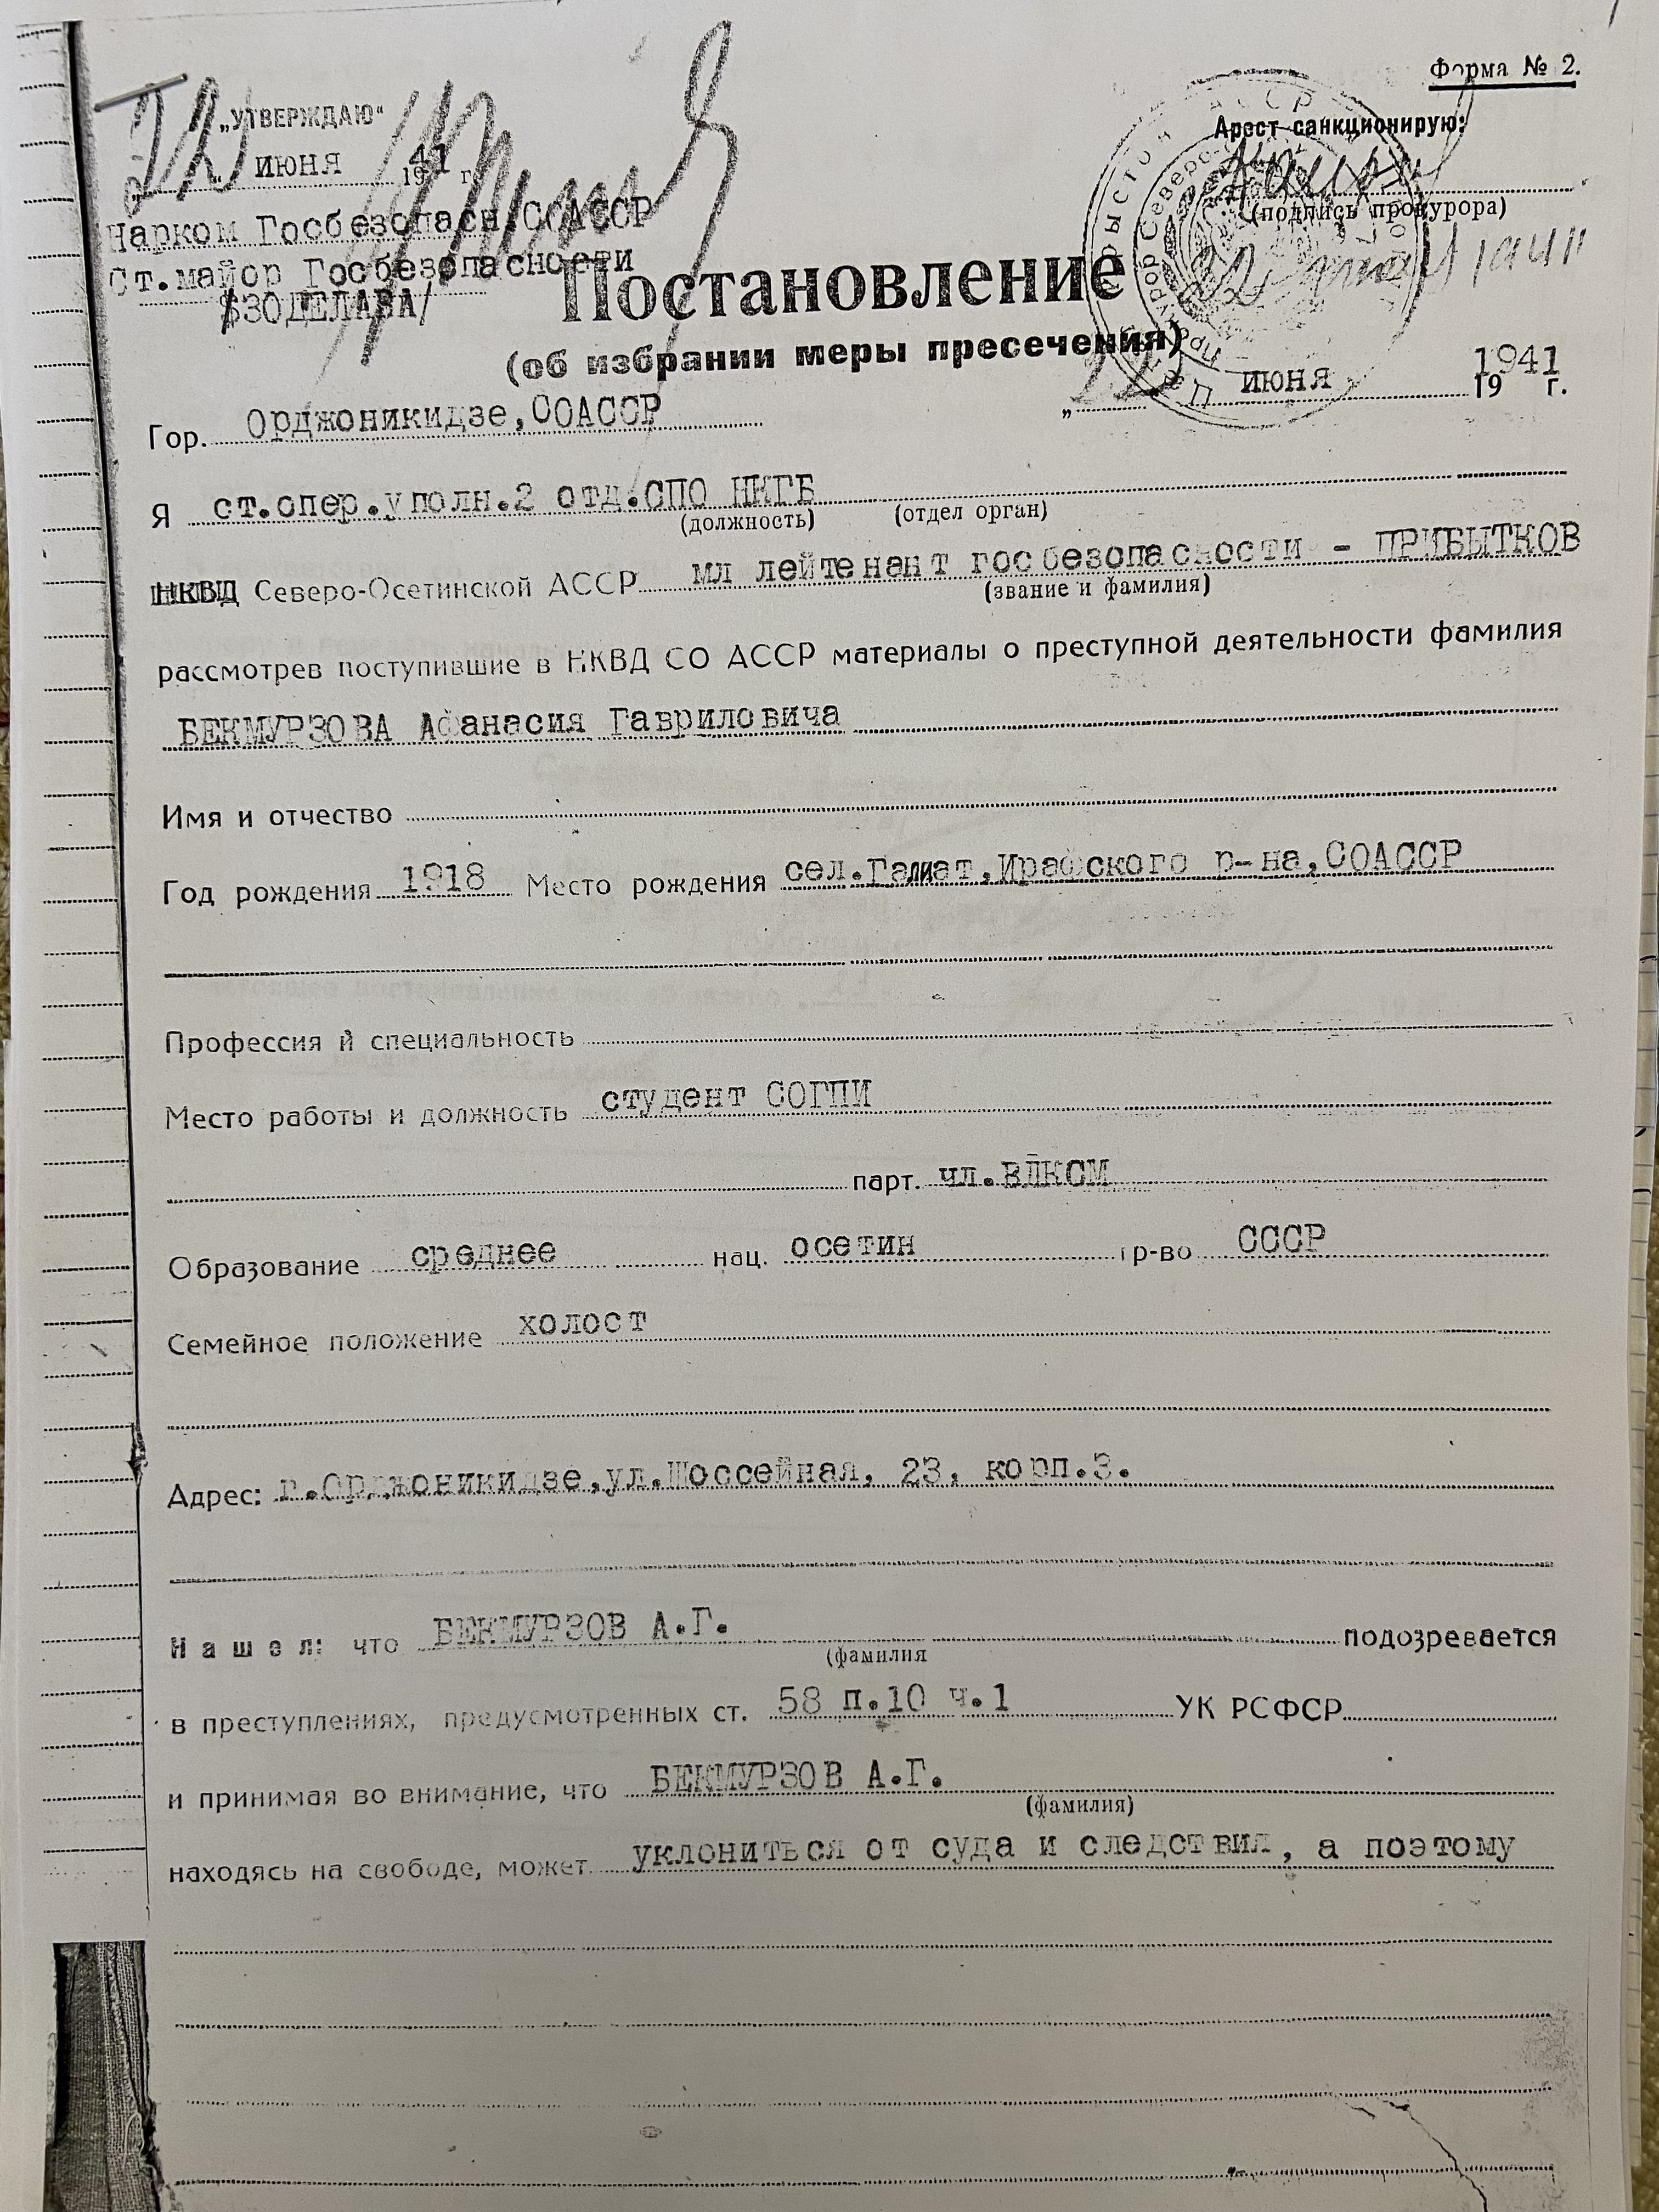 Форма № 2.
„УТВЕРЖДАЮ“
Арест санкционирую:
22 ИЮНЯ 1941 г.
(подпись прокурора)
Нарком Госбезопасн.СОАССР
Ст.майор Госбезопасности
/ЗОДЕЛАВА/
22 1941
Постановление
(об избрании меры пресечения)
„22 ИЮНЯ 19 1941 г.
Гор. Орджоникидзе,СОАССР
Я ст.опер.уполн.2 отд.СПО НКГБ
(должность) (отдел орган)
НКВД Северо-Осетинской АССР мл лейтенант госбезопасности - ПРИБЫТКОВ
(звание и фамилия)
рассмотрев поступившие в НКВД СО АССР материалы о преступной деятельности фамилия
БЕКМУРЗОВА Афанасия Гавриловича
Имя и отчество
Год рождения 1918 Место рождения сел.Галиат,Ирафского р-на,СОАССР
Профессия и специальность
Место работы и должность студент СОГПИ
парт. чл.ВЛКСМ
Образование среднее нац. осетин гр-во СССР
Семейное положение холост
Адрес: г.Орджоникидзе,ул.Шоссейная, 23, корп.3.
Нашел: что БЕКМУРЗОВ А.Г. подозревается
(фамилия
в преступлениях, предусмотренных ст. 58 п.10 ч.1 УК РСФСР
и принимая во внимание, что БЕКМУРЗОВ А.Г.
(фамилия)
находясь на свободе, может уклониться от суда и следствия, а поэтому